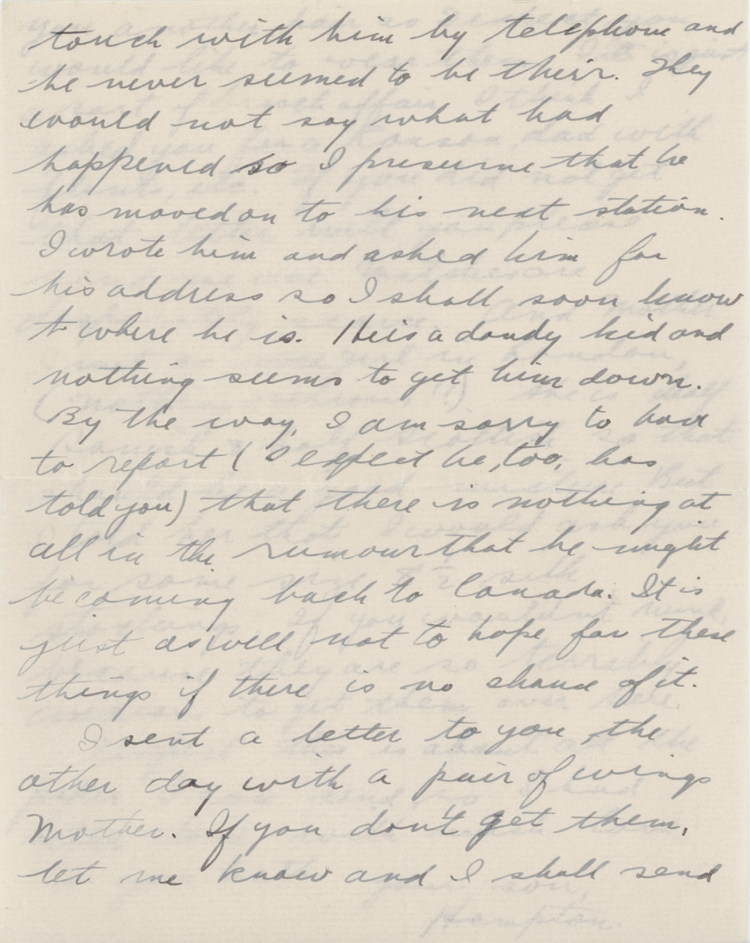 touch with him by telephone and
he never seemed to be their. They
would not say what had
happened so I presume that he
has moved on to his next station.
I wrote him and asked him for
his address so I shall soon know
where he is. He is a dandy kid and
nothing seems to get him down.
By the way, I am sorry to have
to report (I expect he, too, has
told you) that there is nothing at
all in the rumour that he might
be coming back to Canada. It is
just as well not to hope for these
things if there is no chance of it.
I sent a letter to you, the
other day with a pair of wings
Mother. If you don't get them,
let me know and I shall send